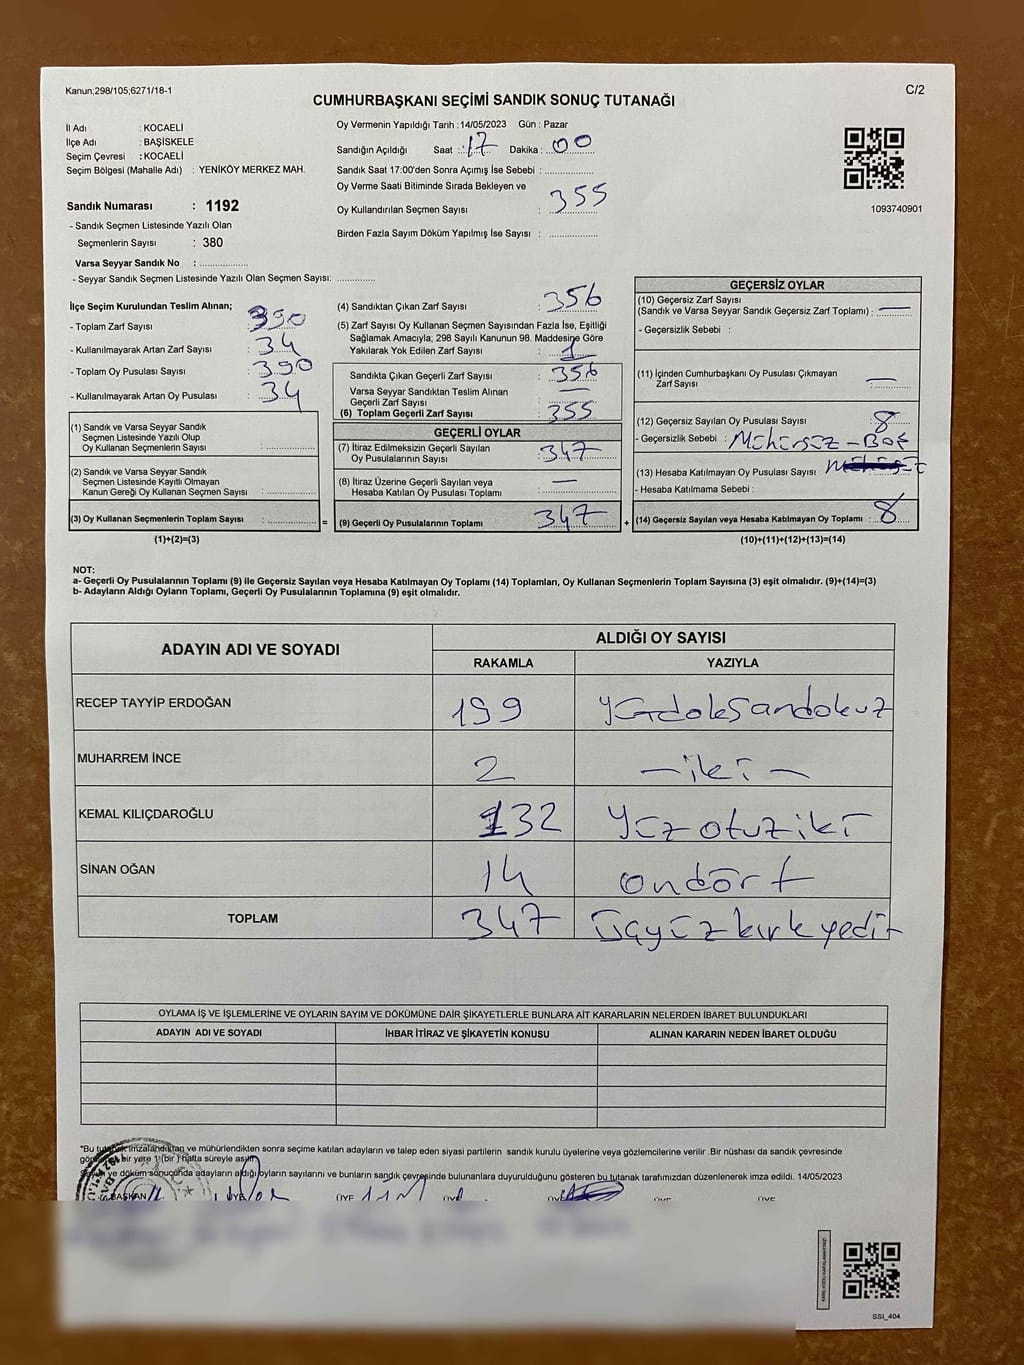 Kanun;298/105;6271/18-1
C/2
CUMHURBAŞKANI SEÇİMİ SANDIK SONUÇ TUTANAĞI
İl Adı : KOCAELİ
İlçe Adı : BAŞİSKELE
Seçim Çevresi : KOCAELİ
Seçim Bölgesi (Mahalle Adı) : YENİKÖY MERKEZ MAH.
Sandık Numarası : 1192
- Sandık Seçmen Listesinde Yazılı Olan
Seçmenlerin Sayısı : 380
Varsa Seyyar Sandık No :
- Seyyar Sandık Seçmen Listesinde Yazılı Olan Seçmen Sayısı:
Oy Vermenin Yapıldığı Tarih :14/05/2023 Gün : Pazar
Sandığın Açıldığı Saat : 17 Dakika : 00
Sandık Saat 17:00'den Sonra Açımış İse Sebebi :
Oy Verme Saati Bitiminde Sırada Bekleyen ve
Oy Kullandırılan Seçmen Sayısı : 355
Birden Fazla Sayım Döküm Yapılmış İse Sayısı :
1093740901
İlçe Seçim Kurulundan Teslim Alınan;
- Toplam Zarf Sayısı : 390
- Kullanılmayarak Artan Zarf Sayısı : 34
- Toplam Oy Pusulası Sayısı : 390
- Kullanılmayarak Artan Oy Pusulası : 34
(1) Sandık ve Varsa Seyyar Sandık
Seçmen Listesinde Yazılı Olup
Oy Kullanan Seçmenlerin Sayısı :
(2) Sandık ve Varsa Seyyar Sandık
Seçmen Listesinde Kayıtlı Olmayan
Kanun Gereği Oy Kullanan Seçmen Sayısı :
(3) Oy Kullanan Seçmenlerin Toplam Sayısı :
(1)+(2)=(3)
=
(4) Sandıktan Çıkan Zarf Sayısı : 356
(5) Zarf Sayısı Oy Kullanan Seçmen Sayısından Fazla İse, Eşitliği
Sağlamak Amacıyla; 298 Sayılı Kanunun 98. Maddesine Göre
Yakılarak Yok Edilen Zarf Sayısı : 1
Sandıkta Çıkan Geçerli Zarf Sayısı : 356
Varsa Seyyar Sandıktan Teslim Alınan
Geçerli Zarf Sayısı : —
(6) Toplam Geçerli Zarf Sayısı : 355
GEÇERLİ OYLAR
(7) İtiraz Edilmeksizin Geçerli Sayılan
Oy Pusulalarının Sayısı : 347
(8) İtiraz Üzerine Geçerli Sayılan veya
Hesaba Katılan Oy Pusulası Toplamı : —
(9) Geçerli Oy Pusulalarının Toplamı : 347
+
GEÇERSİZ OYLAR
(10) Geçersiz Zarf Sayısı
(Sandık ve Varsa Seyyar Sandık Geçersiz Zarf Toplamı) : —
- Geçersizlik Sebebi :
(11) İçinden Cumhurbaşkanı Oy Pusulası Çıkmayan
Zarf Sayısı : —
(12) Geçersiz Sayılan Oy Pusulası Sayısı : 8
- Geçersizlik Sebebi : Mühürsüz - Boş
(13) Hesaba Katılmayan Oy Pusulası Sayısı
- Hesaba Katılmama Sebebi :
(14) Geçersiz Sayılan veya Hesaba Katılmayan Oy Toplamı : 8
(10)+(11)+(12)+(13)=(14)
NOT:
a- Geçerli Oy Pusulalarının Toplamı (9) ile Geçersiz Sayılan veya Hesaba Katılmayan Oy Toplamı (14) Toplamları, Oy Kullanan Seçmenlerin Toplam Sayısına (3) eşit olmalıdır. (9)+(14)=(3)
b- Adayların Aldığı Oyların Toplamı, Geçerli Oy Pusulalarının Toplamına (9) eşit olmalıdır.
ADAYIN ADI VE SOYADI ALDIĞI OY SAYISI
RAKAMLA YAZIYLA
RECEP TAYYİP ERDOĞAN 199 yüzdoksandokuz
MUHARREM İNCE 2 — iki —
KEMAL KILIÇDAROĞLU 132 yüzotuziki
SİNAN OĞAN 14 ondört
TOPLAM 347 üçyüzkırkyedi
OYLAMA İŞ VE İŞLEMLERİNE VE OYLARIN SAYIM VE DÖKÜMÜNE DAİR ŞİKAYETLERLE BUNLARA AİT KARARLARIN NELERDEN İBARET BULUNDUKLARI
ADAYIN ADI VE SOYADI İHBAR İTİRAZ VE ŞİKAYETİN KONUSU ALINAN KARARIN NEDEN İBARET OLDUĞU
*Bu tutanak imzalandıktan ve mühürlendikten sonra seçime katılan adayların ve talep eden siyasi partilerin sandık kurulu üyelerine veya gözlemcilerine verilir .Bir nüshası da sandık çevresinde
bir yere 1 (bir ) hafta süreyle asılır.
Sayım ve döküm sonucunda adayların aldığı oyların sayılarını ve bunların sandık çevresinde bulunanlara duyurulduğunu gösteren bu tutanak tarafımızdan düzenlenerek imza edildi. 14/05/2023
BAŞKAN ÜYE ÜYE ÜYE ÜYE ÜYE ÜYE
SSI_404